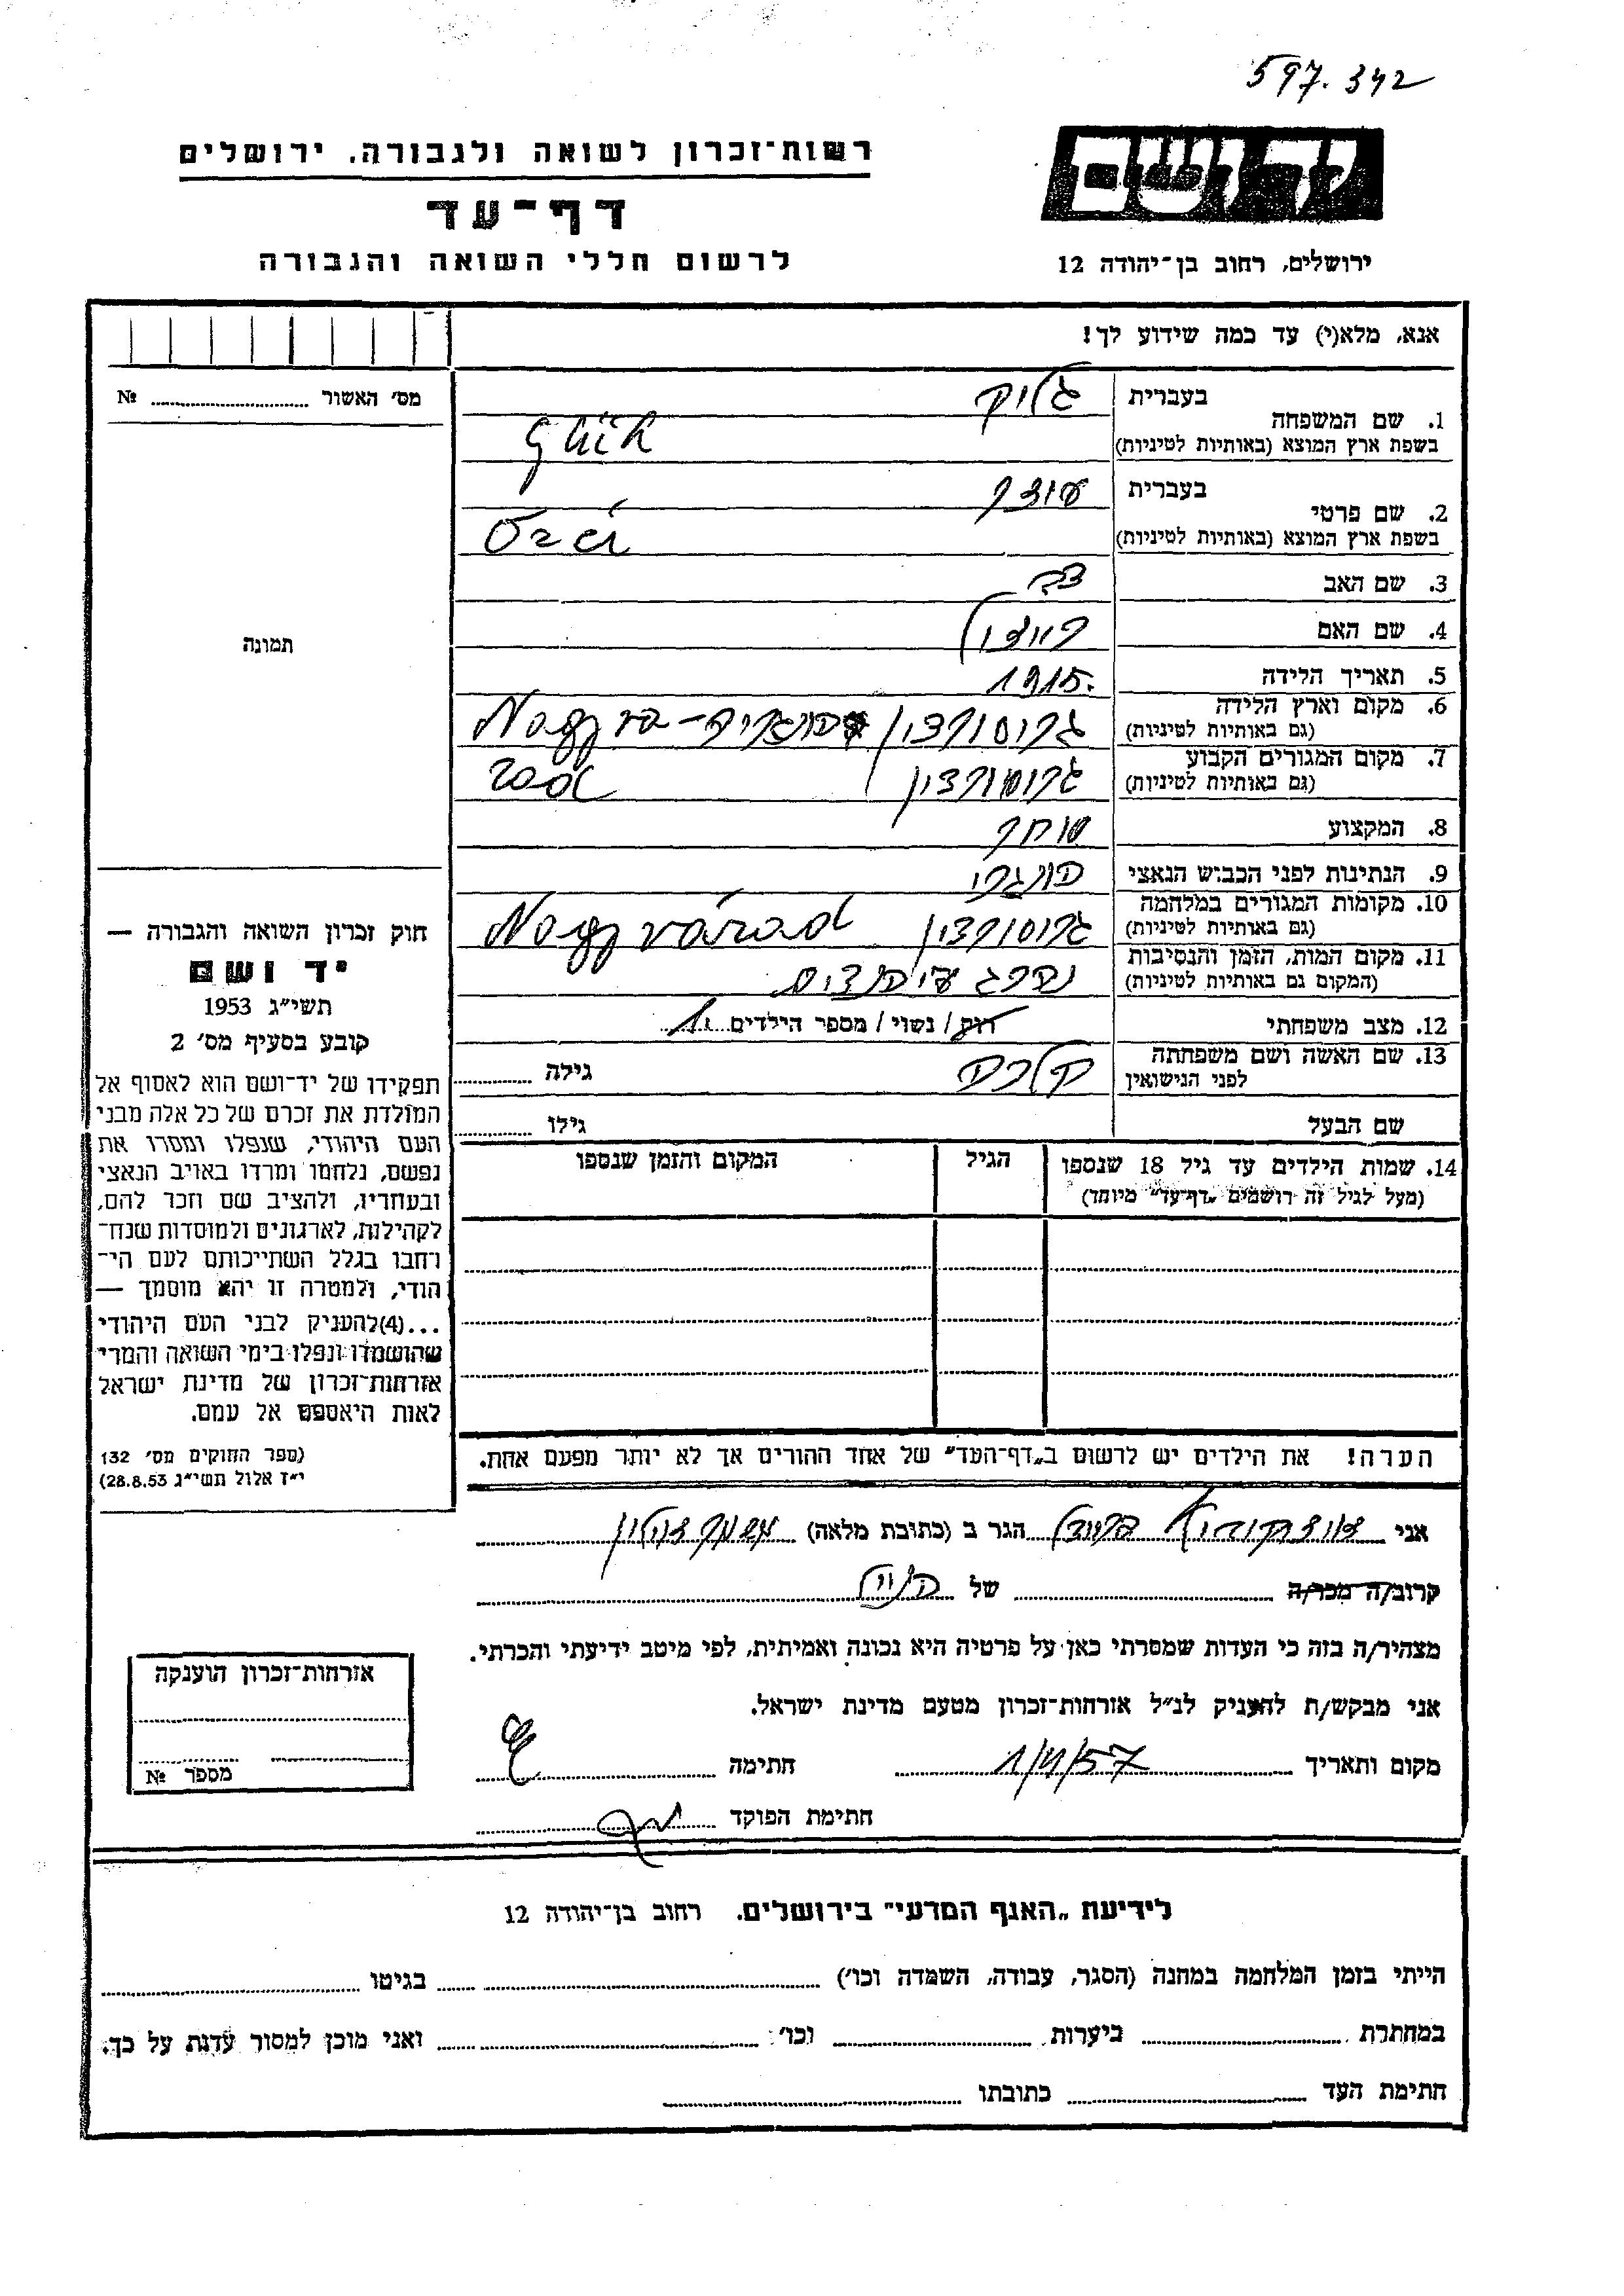 597.342
רשות־זכרון לשואה ולגבורה. ירושלים
דף־עד
לרשום חללי השואה והגבורה
ידושם
ירושלים, רחוב בן־יהודה 12
אנא, מלא(י) עד כמה שידוע לך!
מס׳ האשור № 
תמונה
1. שם המשפחה בעברית גליק
בשפת ארץ המוצא (באותיות לטיניות) Glük
2. שם פרטי בעברית
בשפת ארץ המוצא (באותיות לטיניות)
3. שם האב
4. שם האם
5. תאריך הלידה 1915.
6. מקום וארץ הלידה גרוסורדין Nagyva-
(גם באותיות לטיניות)
7. מקום המגורים הקבוע גרוסורדין rad
(גם באותיות לטיניות)
8. המקצוע סוחר
9. הנתינות לפני הכבוש הנאצי הונגרי
10. מקומות המגורים במלחמה גרוסורדין Nagyvárad
(גם באותיות לטיניות)
11. מקום המות, הזמן והנסיבות נהרג
(המקום גם באותיות לטיניות)
12. מצב משפחתי רוק / נשוי / מספר הילדים 1
13. שם האשה ושם משפחתה גילה
לפני הנישואין
שם הבעל גילו
14. שמות הילדים עד גיל 18 שנספו הגיל המקום והזמן שנספו
(מעל לגיל זה רושמים „דף־עד״ מיוחד)
הערה! את הילדים יש לרשום ב„דף־העד״ של אחד ההורים אך לא יותר מפעם אחת.
חוק זכרון השואה והגבורה —
יד ושם
תשי״ג 1953
קובע בסעיף מס׳ 2
תפקידו של יד־ושם הוא לאסוף אל
המולדת את זכרם של כל אלה מבני
העם היהודי, שנפלו ומסרו את
נפשם, נלחמו ומרדו באויב הנאצי
ובעוזריו, ולהציב שם וזכר להם,
לקהילות, לארגונים ולמוסדות שנח־
רחבו בגלל השתייכותם לעם הי־
הודי, ולמטרה זו יהא מוסמך —
...(4)להעניק לבני העם היהודי
שהושמדו ונפלו בימי השואה והמרי
אזרחות־זכרון של מדינת ישראל
לאות היאספם אל עמם.
(ספר החוקים מס׳ 132
י״ז אלול תשי״ג 28.8.53)
אני הגר ב (כתובת מלאה)
קרוב/ה מכר/ה של
מצהיר/ה בזה כי העדות שמסרתי כאן על פרטיה היא נכונה ואמיתית, לפי מיטב ידיעתי והכרתי.
אני מבקש/ת להעניק לנ״ל אזרחות־זכרון מטעם מדינת ישראל.
מקום ותאריך 1/4/57 חתימה
חתימת הפוקד
אזרחות־זכרון הוענקה
מספר №
לידיעת „האגף המדעי״ בירושלים. רחוב בן־יהודה 12
הייתי בזמן המלחמה במחנה (הסגר, עבודה, השמדה וכו׳) בגיטו
במחתרת ביערות וכו׳ ואני מוכן למסור עדות על כך.
חתימת העד כתובתו